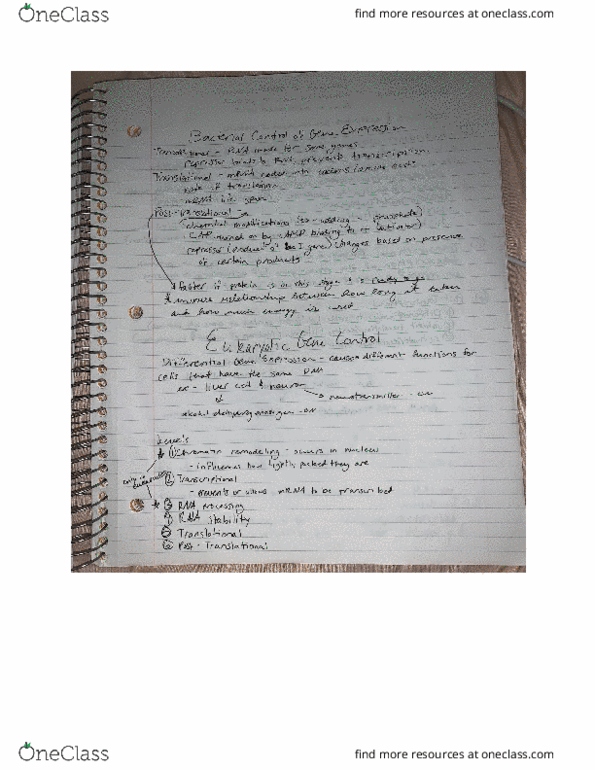 OneClass
find more resources at oneclass.com
Bacterial Control of Gene Expression
Transcriptional - RNA made for some genes
repressor binds to DNA, prevents transcription
Translational - mRNA
rate of translation
mRNA
Post-Translational
(chemical modifications adding phosphate)
CAP turned on by cAMP binding to it
repressor (product of lac I gene) changes based on presence
of certain products
faster if protein is in this stage
inverse relationship between how long it takes
and how much energy is used
Eukaryotic Gene Control
Differential Gene Expression - causes different functions for
cells that have the same DNA
ex - liver cell & neuron
neurotransmitter - on
alcohol dehydrogenase - ON
Levels
① Chromatin remodeling - occurs in nucleus
- influences how tightly packed they are
only in eukaryotes
② Transcriptional
- prevents or allows mRNA to be transcribed
③ RNA processing
④ RNA stability
⑤ Translational
⑥ Post-Translational
OneClass
find more resources at oneclass.com